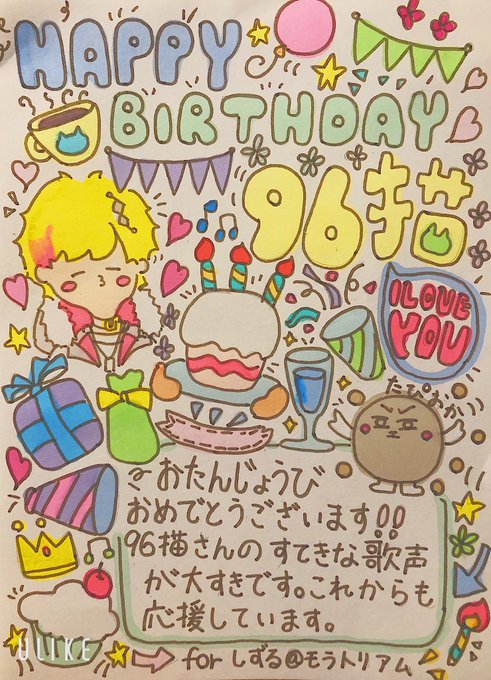 HAPPY
BIRTHDAY
96猫
I LOVE
YOU
たぴおか
おたんじょうび
おめでとうございます!!
96猫さんのすてきな歌声
が大すきです。これからも
応援しています。
for しずる@もうトリアム
ULIKE